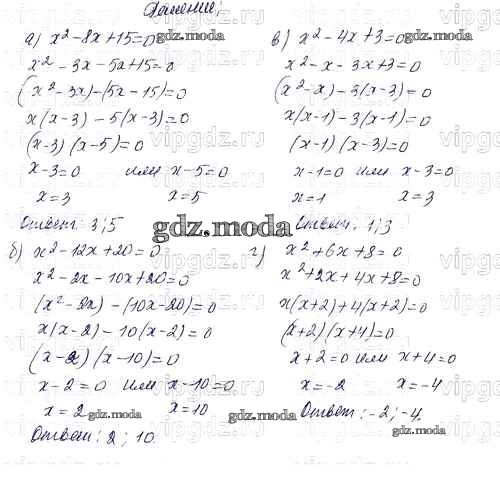 Решение:
а) x² - 8x + 15 = 0
x² - 3x - 5x + 15 = 0
(x² - 3x) - (5x - 15) = 0
x(x-3) - 5(x-3) = 0
(x-3)(x-5) = 0
x-3=0 или x-5=0
x=3 x=5
Ответ: 3; 5
б) x² - 12x + 20 = 0
x² - 2x - 10x + 20 = 0
(x² - 2x) - (10x - 20) = 0
x(x-2) - 10(x-2) = 0
(x-2)(x-10) = 0
x-2=0 или x-10=0
x=2 x=10
Ответ: 2; 10.
в) x² - 4x + 3 = 0
x² - x - 3x + 3 = 0
(x² - x) - 3(x-3) = 0
x(x-1) - 3(x-1) = 0
(x-1)(x-3) = 0
x-1=0 или x-3=0
x=1 x=3
Ответ: 1; 3
г) x² + 6x + 8 = 0
x² + 2x + 4x + 8 = 0
x(x+2) + 4(x+2) = 0
(x+2)(x+4) = 0
x+2=0 или x+4=0
x=-2 x=-4
Ответ: -2; -4.
gdz.moda
gdz.moda
gdz.moda
gdz.moda
gdz.moda
vipgdz.ru